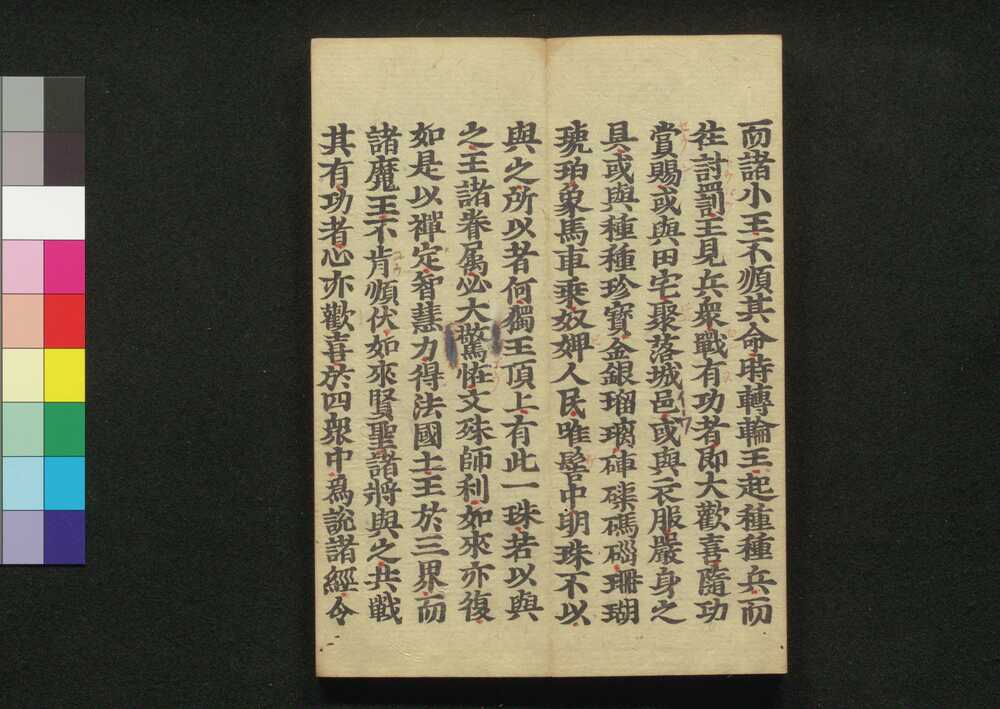 而諸小王不順其命時轉輪王起種種兵而
往討罰王見兵衆戰有功者即大歡喜隨功
賞賜或與田宅聚落城邑或與衣服嚴身之
具或與種種珍寶金銀瑠璃硨磲碼碯珊瑚
琥珀象馬車乘奴婢人民唯髻中明珠不以
與之所以者何獨王頂上有此一珠若以與
之王諸眷属必大驚恠文殊師利如來亦復
如是以禪定智慧力得法國土王於三界而
諸魔王不肯順伏如來賢聖諸將與之共戰
其有功者心亦歡喜於四衆中爲說諸經令